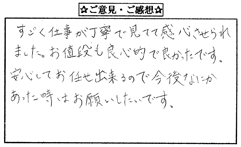 ☆ご意見・ご感想☆
すごく仕事が丁寧で見てて感心させられ
ました。お値段も良心的で良かったです。
安心してお任せ出来るので今後なにか
あった時はお願いしたいです。